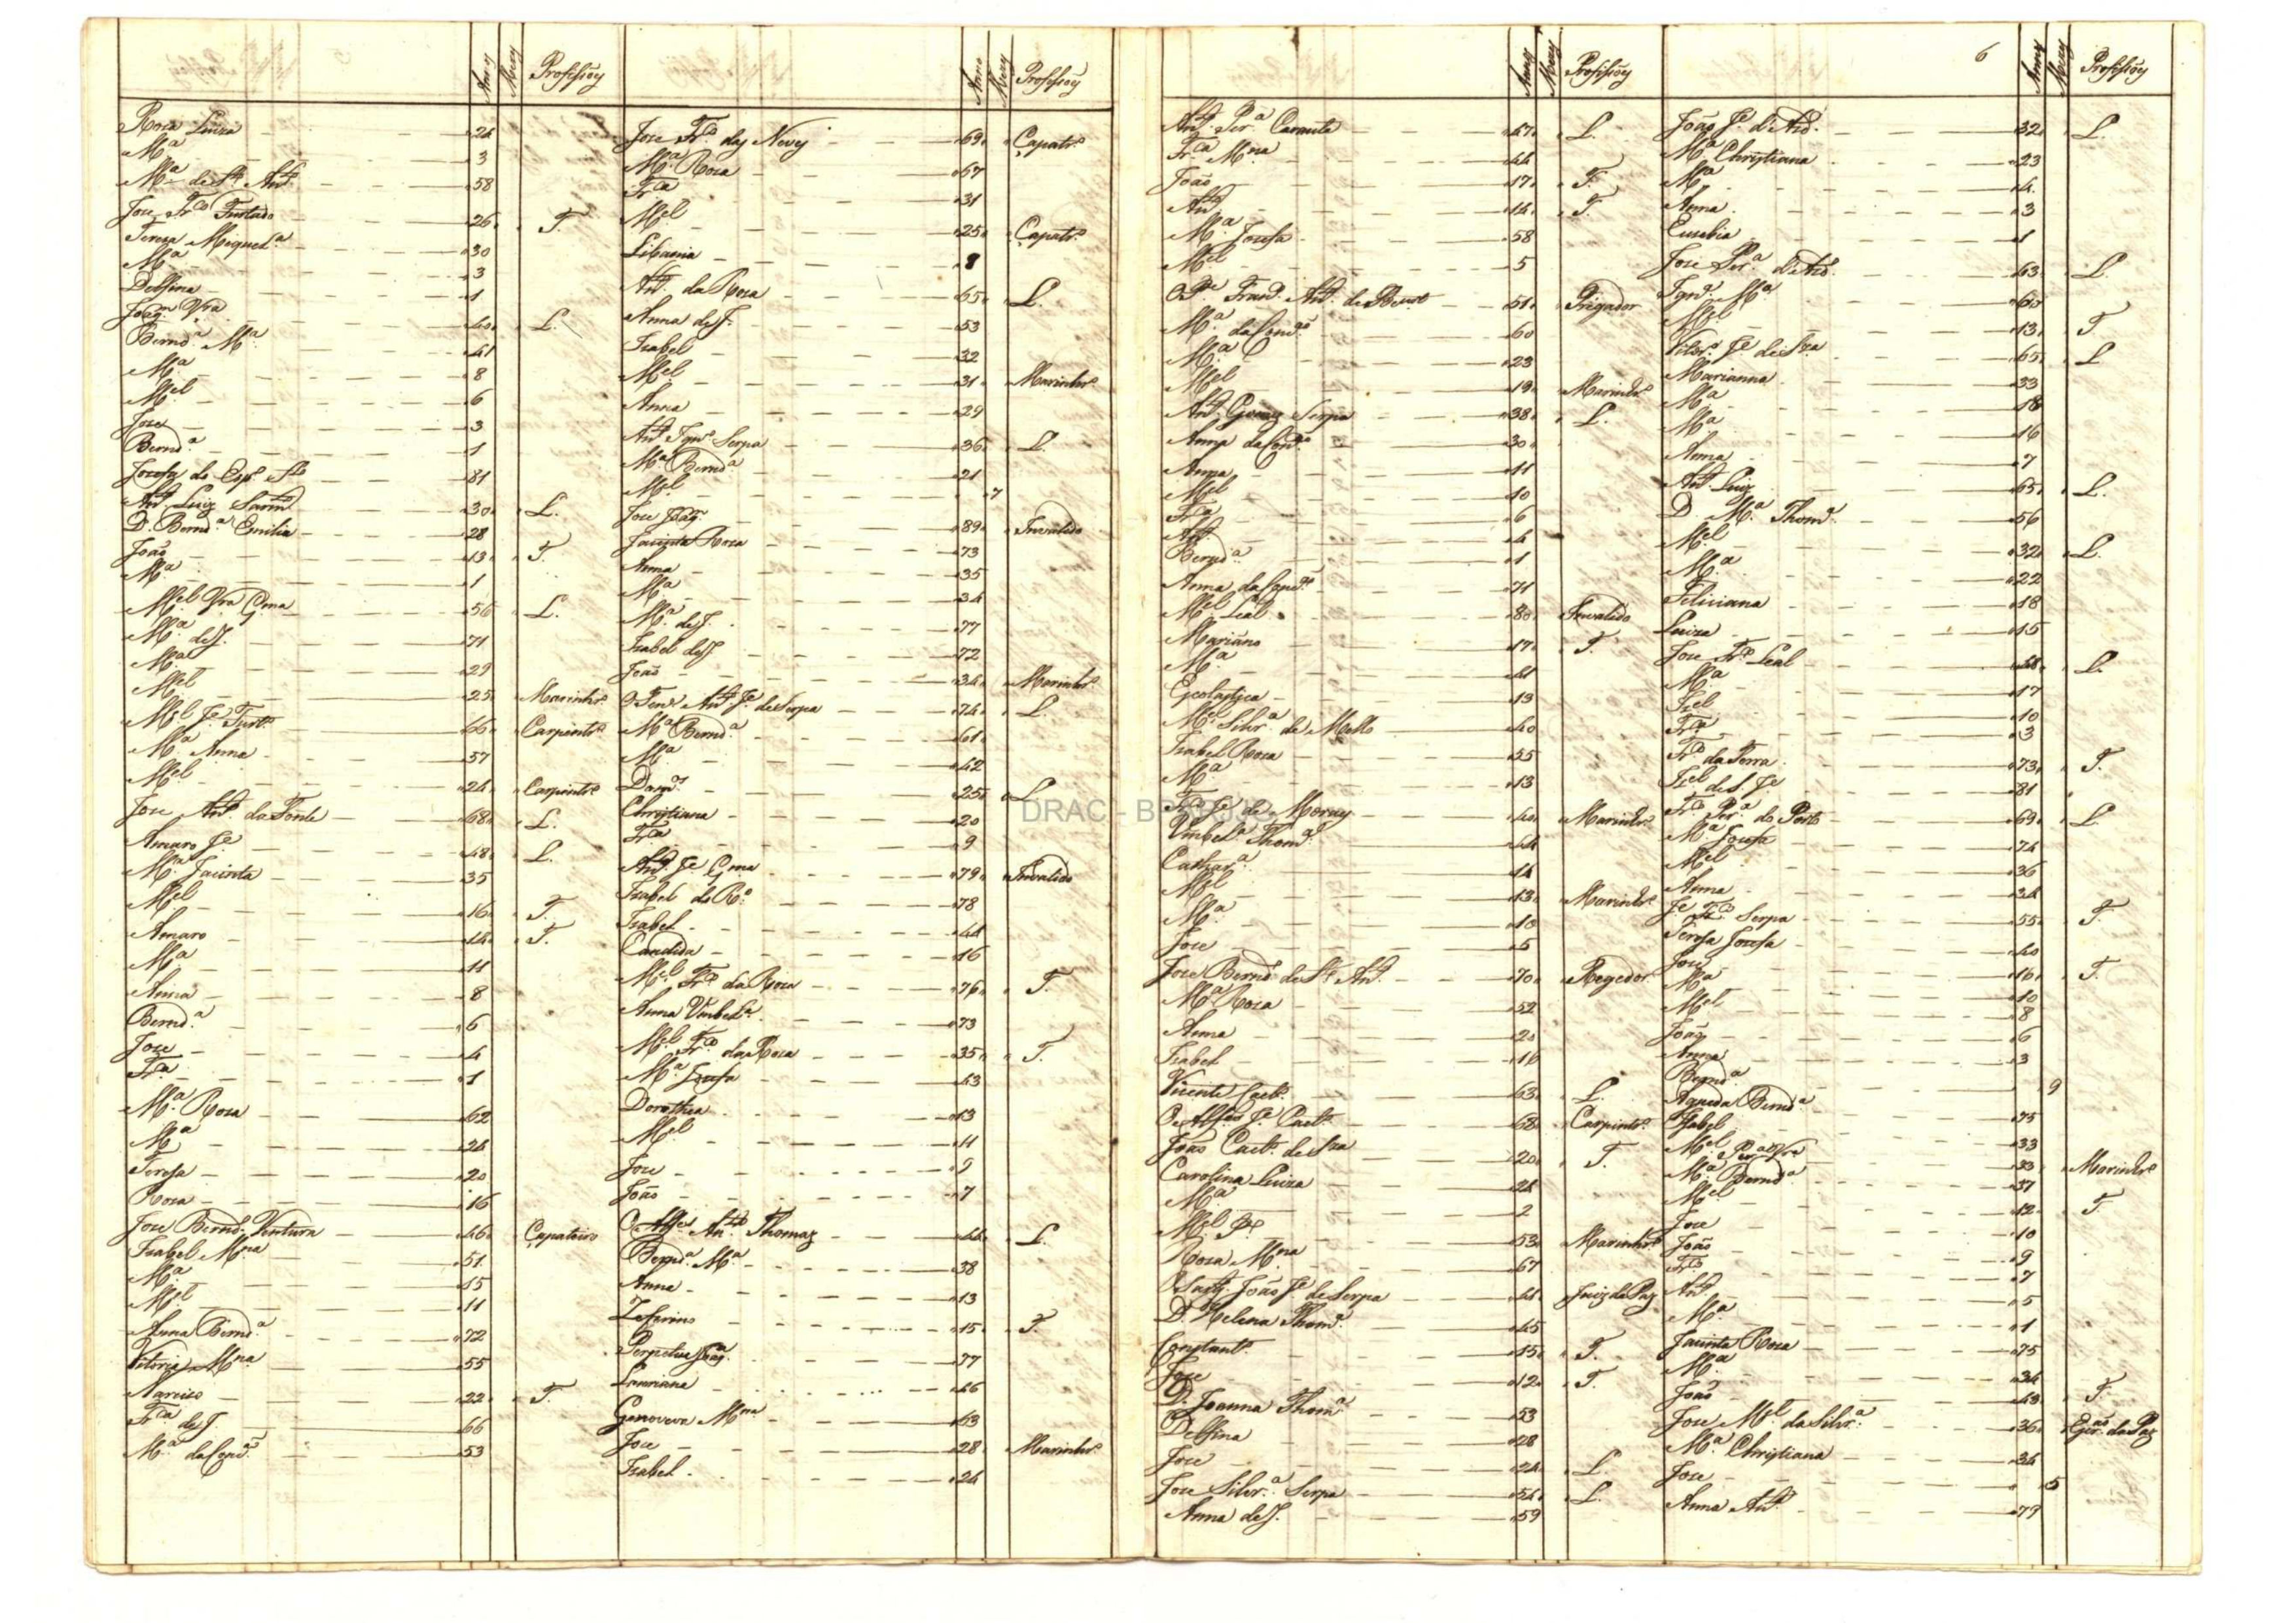 Annos Mezes Profissões Annos Mezes Profissões
Rosa Luiza 24
Mª 3
Mª de Stº Antº 58
Jose Frco Furtado 26 T.
Teresa Miquelª 30
Mª 3
Delfina 1
Joaqm Vrª 40 L.
Berndª Mª 41
Mª 8
Mel 6
Jose 3
Berndª 1
Josefa do Espº Stº 81
Antº Luiz 30 L.
D. Berndª Emilia 28
João 13 T.
Mª 1
Mel Vrª Gma 56 L.
Mª de J. 71
Mª 29
Mel 25 Marinhrº
Mel Jº Furtº 66 Carpintrº
Mª Anna 57
Mel 24 Carpintrº
Jose Antº da Fonte 68 L.
Amaro Jº 48 L.
Mª Jacinta 35
Mel 16 T.
Amaro 14 T.
Mª 11
Anna 8
Berndª 6
Jose 4
Frca 1
Mª Rosa 62
Mª 24
Teresa 20
Rosa 16
Jose Berndº Ventura 46 Çapateiro
Izabel Mna 51
Mª 15
Mel 11
Anna Berndª 72
Vitoria Mna 55
Narcizo 22 T.
Frca de J. 66
Mª da Concam 53
Jose Frco das Neves 69 Çapatrº
Mª Rosa 67
Frca 31
Mel 25 Çapatrº
Libania 8
Antº da Rosa 65 L.
Anna de J. 53
Izabel 32
Mel 31 Marinhrº
Anna 29
Antº Ignº Serpa 36 L.
Mª Berndª 21
Mel 7
Jose Joaqm 89 Invalido
Jacinta Rosa 73
Anna 35
Mª 34
Mª de J. 77
Izabel de J. 72
João 34 Marinhrº
O Tene Antº Jº de Serpa 74 L.
Mª Berndª 61
Mª 42
Domos 25 L.
Christiana 20
Frca 9
Antº Jº Gma 79 Invalido
Izabel do Rº 78
Izabel 44
Candida 16
Mel Frco da Rosa 76 T.
Anna Umbelª 73
Mel Frco da Rosa 35 T.
Mª Josefa 43
Dorothea 13
Mel 11
Jose 9
João 7
O Alfes Antº Thomaz 44 L.
Berndª Mª 38
Anna 13
Zeferino 15 T.
Perpetua Joaqª 77
Lauriana 46
Genoveva Mna 63
Jose 28 Marinhrº
Izabel 24
Annos Mezes Profissões 6 Annos Mezes Profissões
Antº Perª 47 L.
Frca Mna 44
João 17 T.
Antº 14 T.
Mª Josefa 58
Mel 5
O Pe Frandº Antº 51 Prégador
Mª da Concam 60
Mª 23
Mel 19 Marinhrº
Antº Gomes Serpa 38 L.
Anna da Concam 30
Anna 11
Mel 10
Frca 6
Antº 4
Berndª 1
Anna da Concam 71
Mel Leal 80 Invalido
Mariano 17 T.
Mª 41
Escolastica 13
Mel Silvrª de Mello 40
Izabel Rosa 55
Mª 13
Frco Jº de Moraes 40 Marinhrº
Umbelª Thomª 44
Catharª 14
Mel 13 Marinhrº
Mª 10
Jose 5
Jose Berndº de Stº Antº 70 Regedor
Mª Rosa 52
Anna 20
Izabel 16
Vicente Caetº 63 L.
O Alferes Jº Caetº 68 Carpintrº
João Caetº de Sza 20 T.
Carolina Luiza 24
Mª 2
Mel Jº 53 Marinhrº
Rosa Mna 67
O Sargº João Jº de Serpa 41 Juiz da Paz
D. Helena Thomª 45
Constantº 15 T.
Jose 12 T.
D. Joanna Thomª 53
Delfina 28
Jose 24 L.
Jose Silvrª Serpa 54 L.
Anna de J. 59
João Jº d'Avª 32 L.
Mª Christiana 23
Mª 4
Anna 3
Eusebia 1
Jose Perª d'Avª 63 L.
Ignª Mª 60
Mel 13 T
Vitorº Jº de Sza 65 L
Marianna 33
Mª 18
Mª 16
Anna 7
Antº Luiz 65 L.
D. Mª Thomª 56
Mel 32 L.
Mª 22
Feliciana 18
Luiza 15
Jose Frco Leal 48 L.
Mª 17
Izel 10
Frca 3
Frco da Terra 73 T.
Izel de S. Jº 81
Frco Perª do Porto 69 L.
Mª Josefa 74
Mel 36
Anna 34
Jº Frco Serpa 55 T.
Teresa Josefa 40
Jose 16 T.
Mª 10
Mel 8
João 6
Anna 3
Berndª 9
Agueda Berndª 75
Izabel 33
Mel Perª Vrª 33 Marinhrº
Mª Berndª 37
Mel 12 T
Jose 10
João 9
Frco 7
Antº 5
Mª 1
Jacinta Rosa 75
Mª 34
João 43 T.
Jose Mel da Silvrª 36 Escram da Paz
Mª Christiana 34
Jose 5
Anna Antª 79
DRAC - BPARJJG